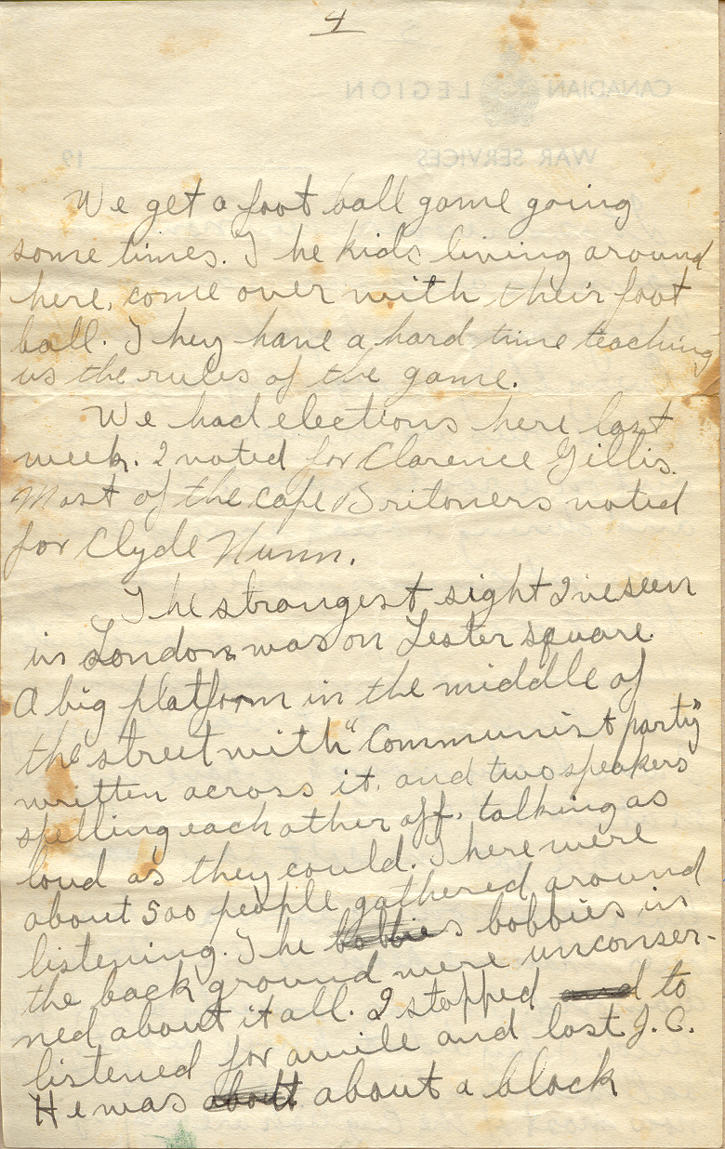 4
CANADIAN LEGION
WAR SERVICES 19
We get a foot ball game going
some times. The kids living around
here, come over with their foot
ball. They have a hard time teaching
us the rules of the game.
We had elections here last
week. I voted for Clarence Gillis.
Most of the Cape Britoners voted
for Clyde Nunn.
The strangest sight I've seen
in London, was on Lester square.
A big platform in the middle of
the street with "Communist party"
written across it, and two speakers
spelling each other off, talking as
loud as they could. There were
about 500 people gathered around
listening. The bobbies bobbies in
the back ground were unconser-
ned about it all. I stopped and to
listened for awile and lost J.C.
He was about about a block